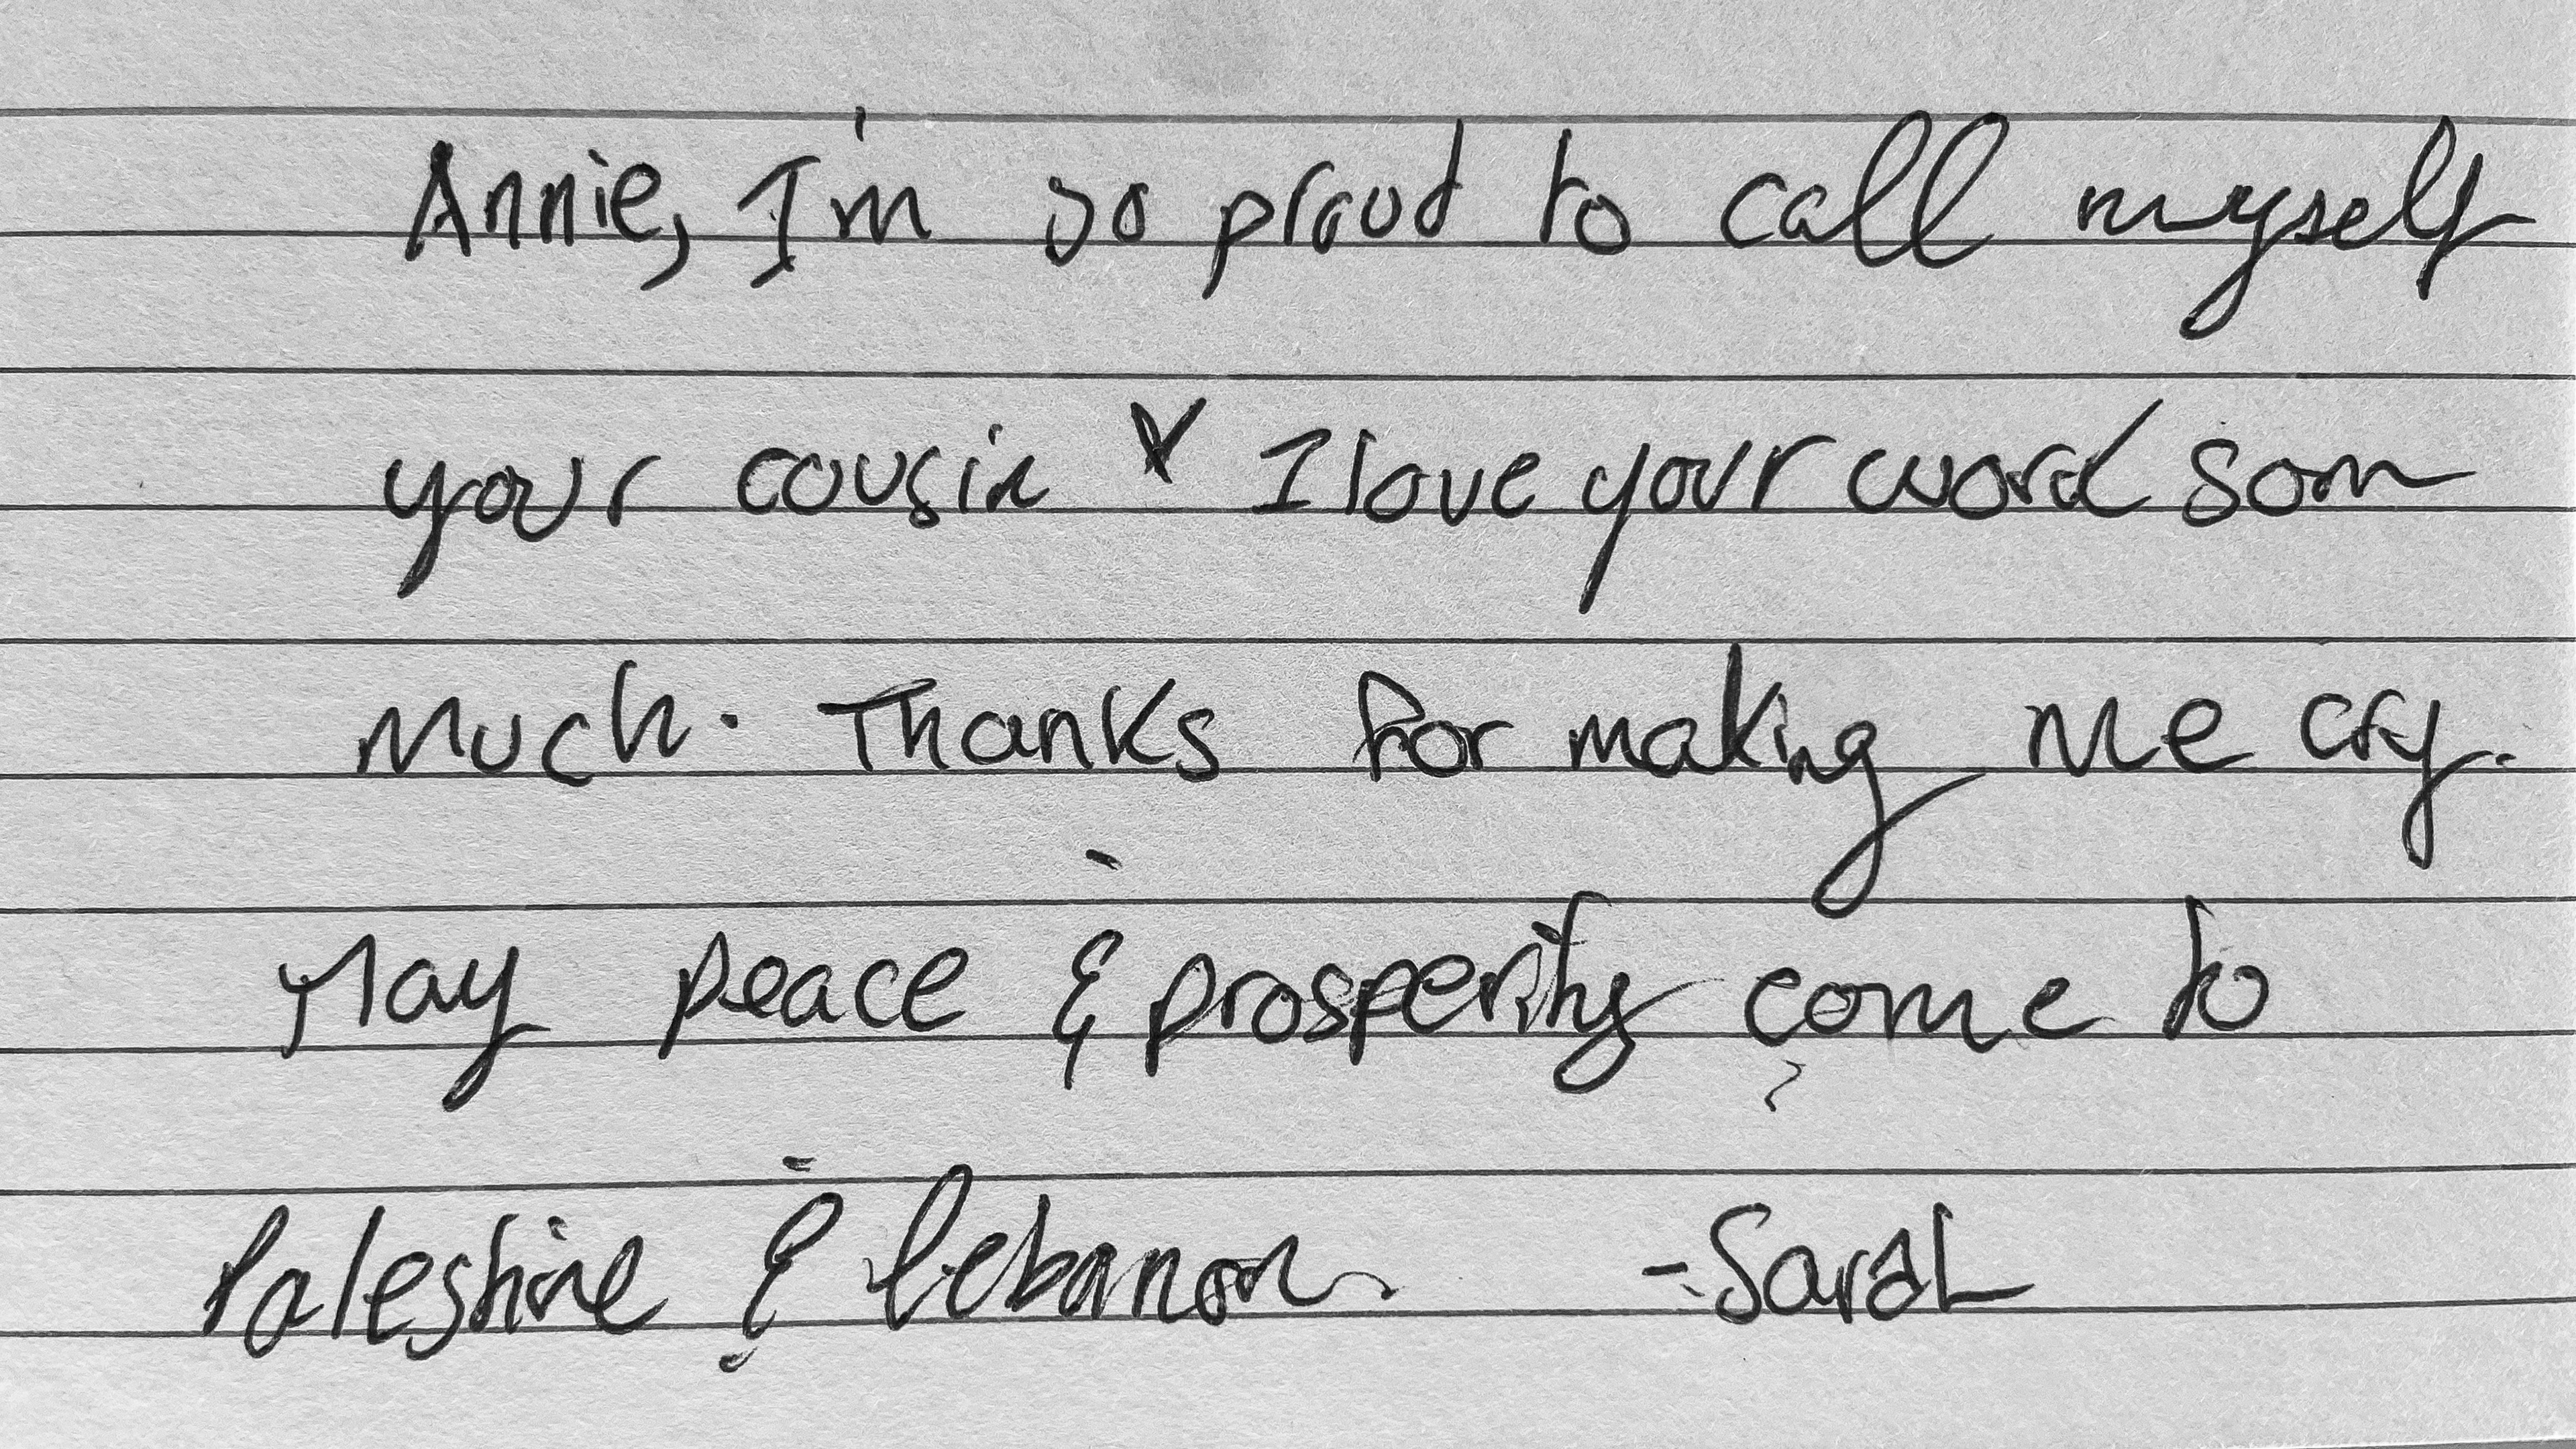 Annie, I'm so proud to call myself
your cousin x I love your word som
much. Thanks for making me cry.
May peace & prosperity come to
Palestine & Lebanon. -Sarah